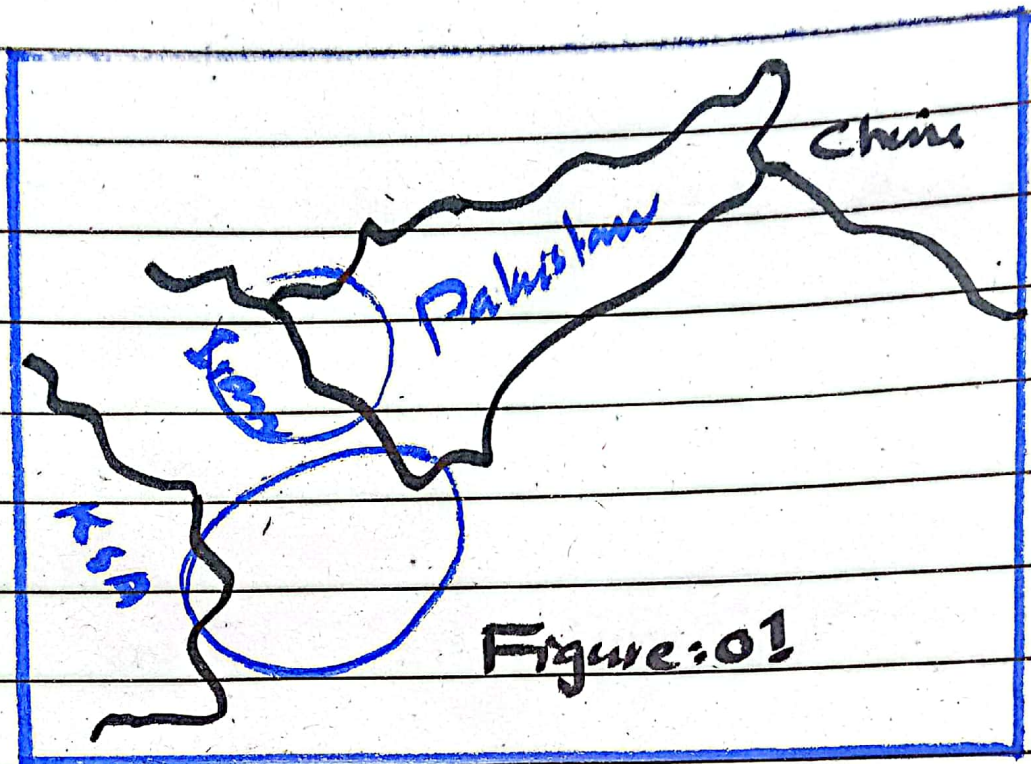 China
Pakistan
Iran
KSA
Figure:01